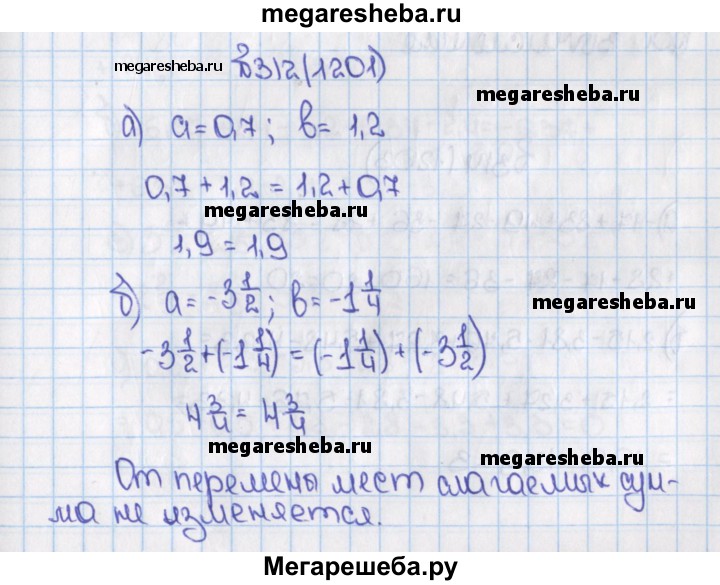 megaresheba.ru
megaresheba.ru
№312(1201)
megaresheba.ru
а) a=0,7; b=1,2
0,7+1,2=1,2+0,7
megaresheba.ru
1,9=1,9
б) a=-3 1/2; b=-1 1/4
megaresheba.ru
-3 1/2+(-1 1/4)=(-1 1/4)+(-3 1/2)
4 3/4=4 3/4
megaresheba.ru
megaresheba.ru
От перемены мест слагаемых сум-
ма не изменяется.
Мегарешеба.ру